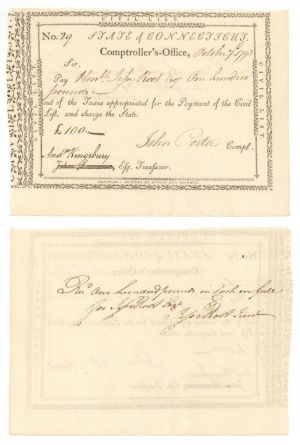 CIVIL LIST.
No. 29 STATE of CONNECTICUT.
Comptroller's-Office, October 7th 1793
Sir,
Pay Honble Jesse Root Esq One hundred
pounds
out of the Taxes appropriated for the Payment of the Civil
List, and charge the State.
£100
John Porter Compt.
Andw Kingsbury
Esq. Treasurer.
CIVIL LIST.
Recd One hundred pounds in Cash in full
for Jesse Root Esqr
Jesse Root Junr